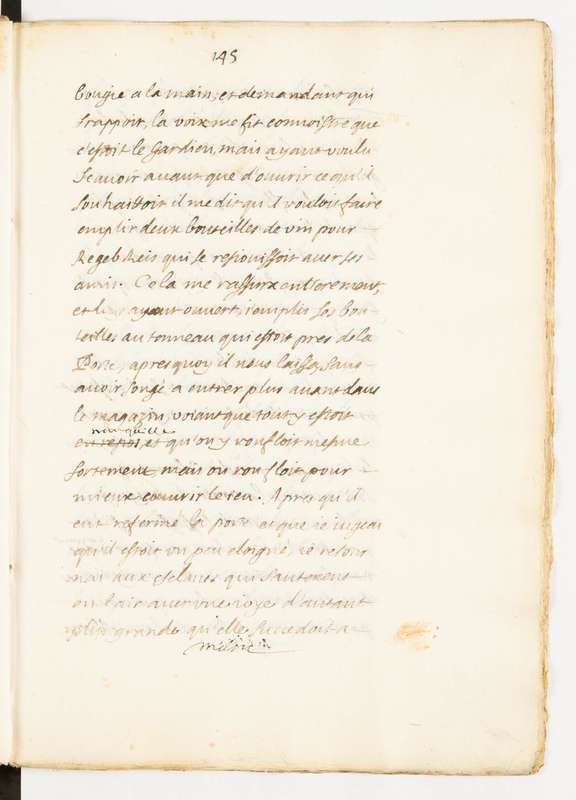 145
bougie a la main, et demandant qui
frappoit, la voix me fit connoistre que
c'estoit le Gardien, mais ayant voulu
scavoir avant que d'ouvrir ce qu'il
souhaittoit il me dit qu'il vouloit faire
emplir deux bouteilles de vin pour
Regeb Reis qui se resiouissoit avec ses
amis. Cela me rassura entierement,
et luy ayant ouvert, i'emplis ses bou
teilles au tonneau qui estoit pres de la
Porte, apres quoy il nous laissa, sans
avoir songé a entrer plus avant dans
le magazin, voiant que tout y estoit
tranquille
en repos, et qu'on y ronfloit mesme
fortement, mais on ronfloit pour
mieux couurir le ieu. Apres qu'il
eut refermé la porte et que ie iugeai
qu'il estoit un peu eloigné, ie retour
nai aux esclaves qui sauterent
en l'air avec une ioye d'autant
plus grande qu'elle succedoit a